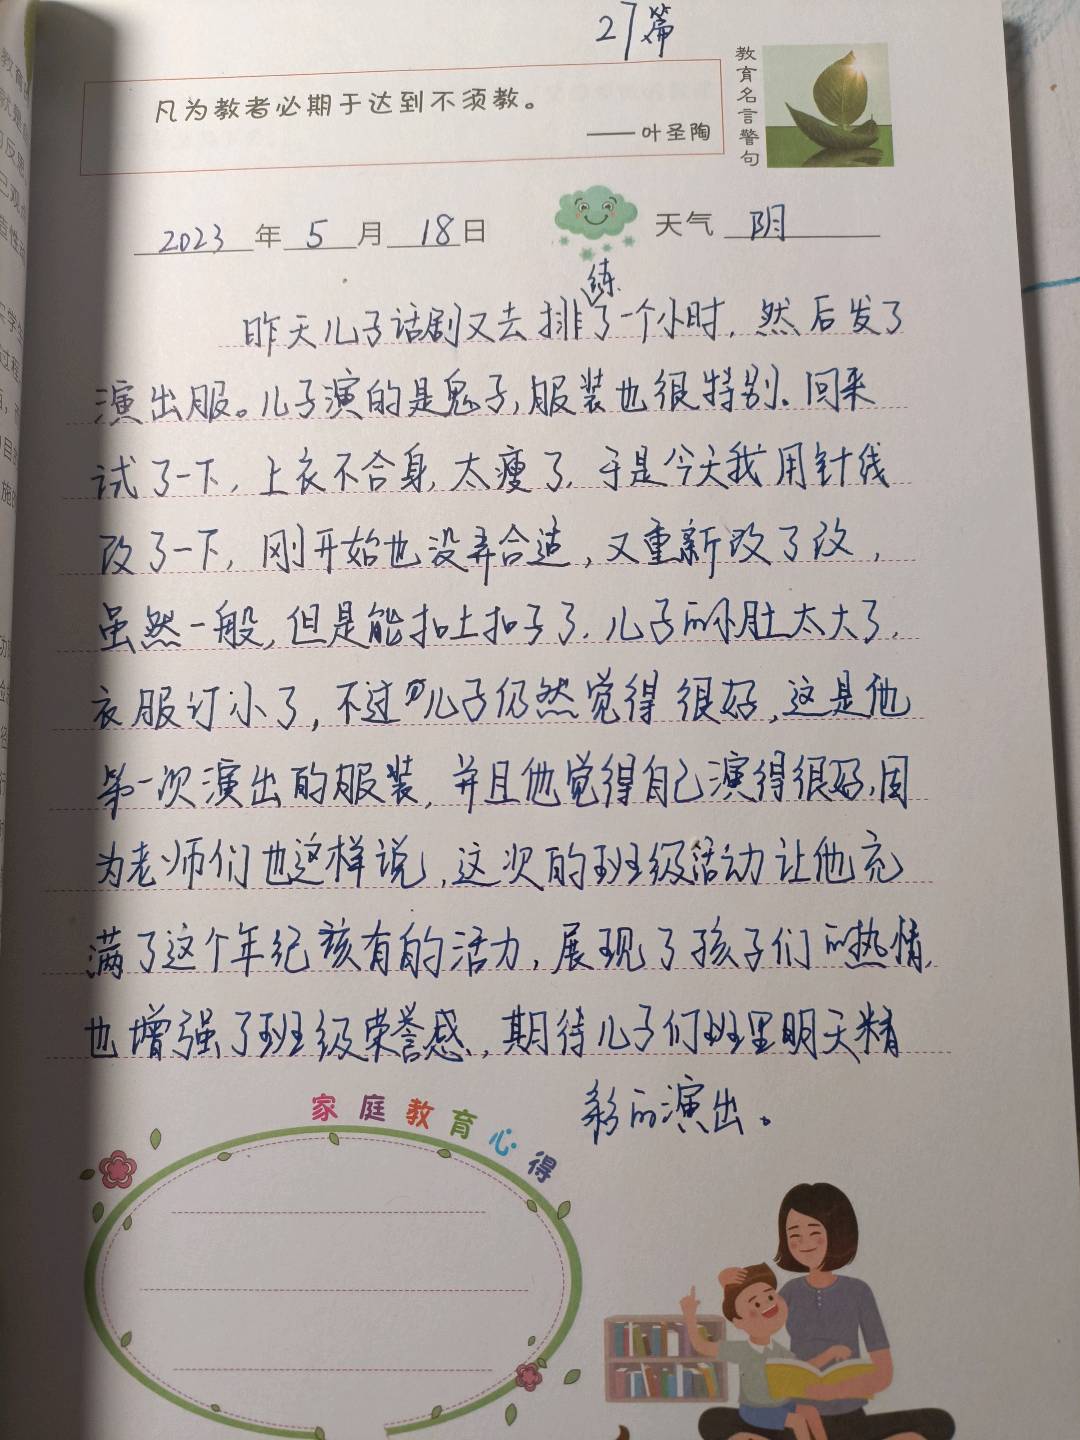 27篇
凡为教者必期于达到不须教。
——叶圣陶
教育名言警句
2023年5月18日 天气 阴
昨天儿子话剧又去排练了一个小时，然后发了
演出服。儿子演的是鬼子，服装也很特别。回来
试了一下，上衣不合身，太瘦了，于是今天我用针线
改了一下，刚开始也没弄合适，又重新改了改，
虽然一般，但是能扣上扣子了，儿子的小肚太大了，
衣服订小了，不过儿子仍然觉得很好，这是他
第一次演出的服装，并且他觉得自己演得很好，因
为老师们也这样说，这次的班级活动让他充
满了这个年纪该有的活力，展现了孩子们的热情，
也增强了班级荣誉感，期待儿子们班里明天精
彩的演出。
家庭教育心得